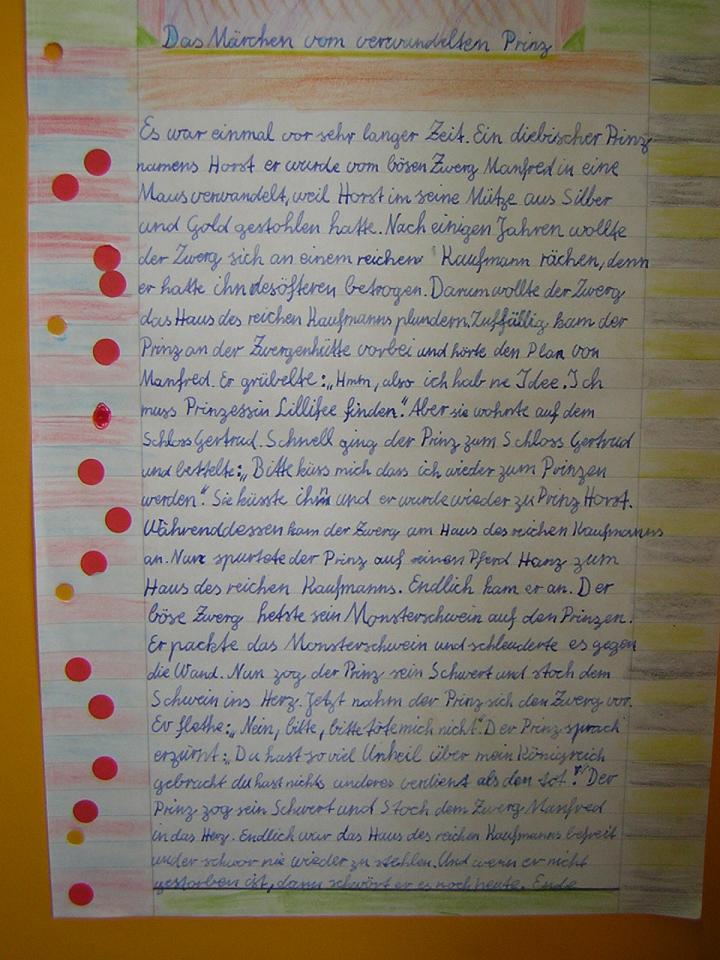 Das Märchen vom verwundelten Prinz
Es war einmal vor sehr langer Zeit. Ein diebischer Prinz
namens Horst er wurde vom bösen Zwerg Manfred in eine
Maus verwandelt, weil Horst im seine Mütze aus Silber
und Gold gestohlen hatte. Nach einigen Jahren wollte
der Zwerg sich an einem reichen Kaufmann rächen, denn
er hatte ihn desöfteren betrogen. Darum wollte der Zwerg
das Haus des reichen Kaufmanns plundern. Zuffällig kam der
Prinz an der Zwergenhütte vorbei und hörte den Plan von
Manfred. Er grübelte: „Hmm, also ich hab ne Idee. Ich
muss Prinzessin Lillifee finden." Aber sie wohnte auf dem
Schloss Gertrud. Schnell ging der Prinz zum Schloss Gertrud
und bettelte: „Bitte küss mich dass ich wieder zum Prinzen
werden". Sie küsste ihn und er wurde wieder zu Prinz Horst.
Währenddessen kam der Zwerg am Haus des reichen Kaufmanns
an. Nun spurtete der Prinz auf seinen Pferd Hanz zum
Haus des reichen Kaufmanns. Endlich kam er an. Der
böse Zwerg hetste sein Monsterschwein auf den Prinzen.
Er packte das Monsterschwein und schleuderte es gegen
die Wand. Nun zog der Prinz sein Schwert und stoch dem
Schwein ins Herz. Jetzt nahm der Prinz sich den Zwerg vor.
Er flehte: „Nein, bitte, bitte töte mich nicht". Der Prinz sprach
erzürnt: „Du hast so viel Unheil über mein Königreich
gebracht du hast nichts anderes verdient als den tot!" Der
Prinz zog sein Schwert und Stoch dem Zwerg Manfred
in das Herz. Endlich war das Haus des reichen Kaufmanns befreit
und er schwor nie wieder zu stehlen. Und wenn er nicht
gestorben ist, dann schwört er es noch heute. Ende